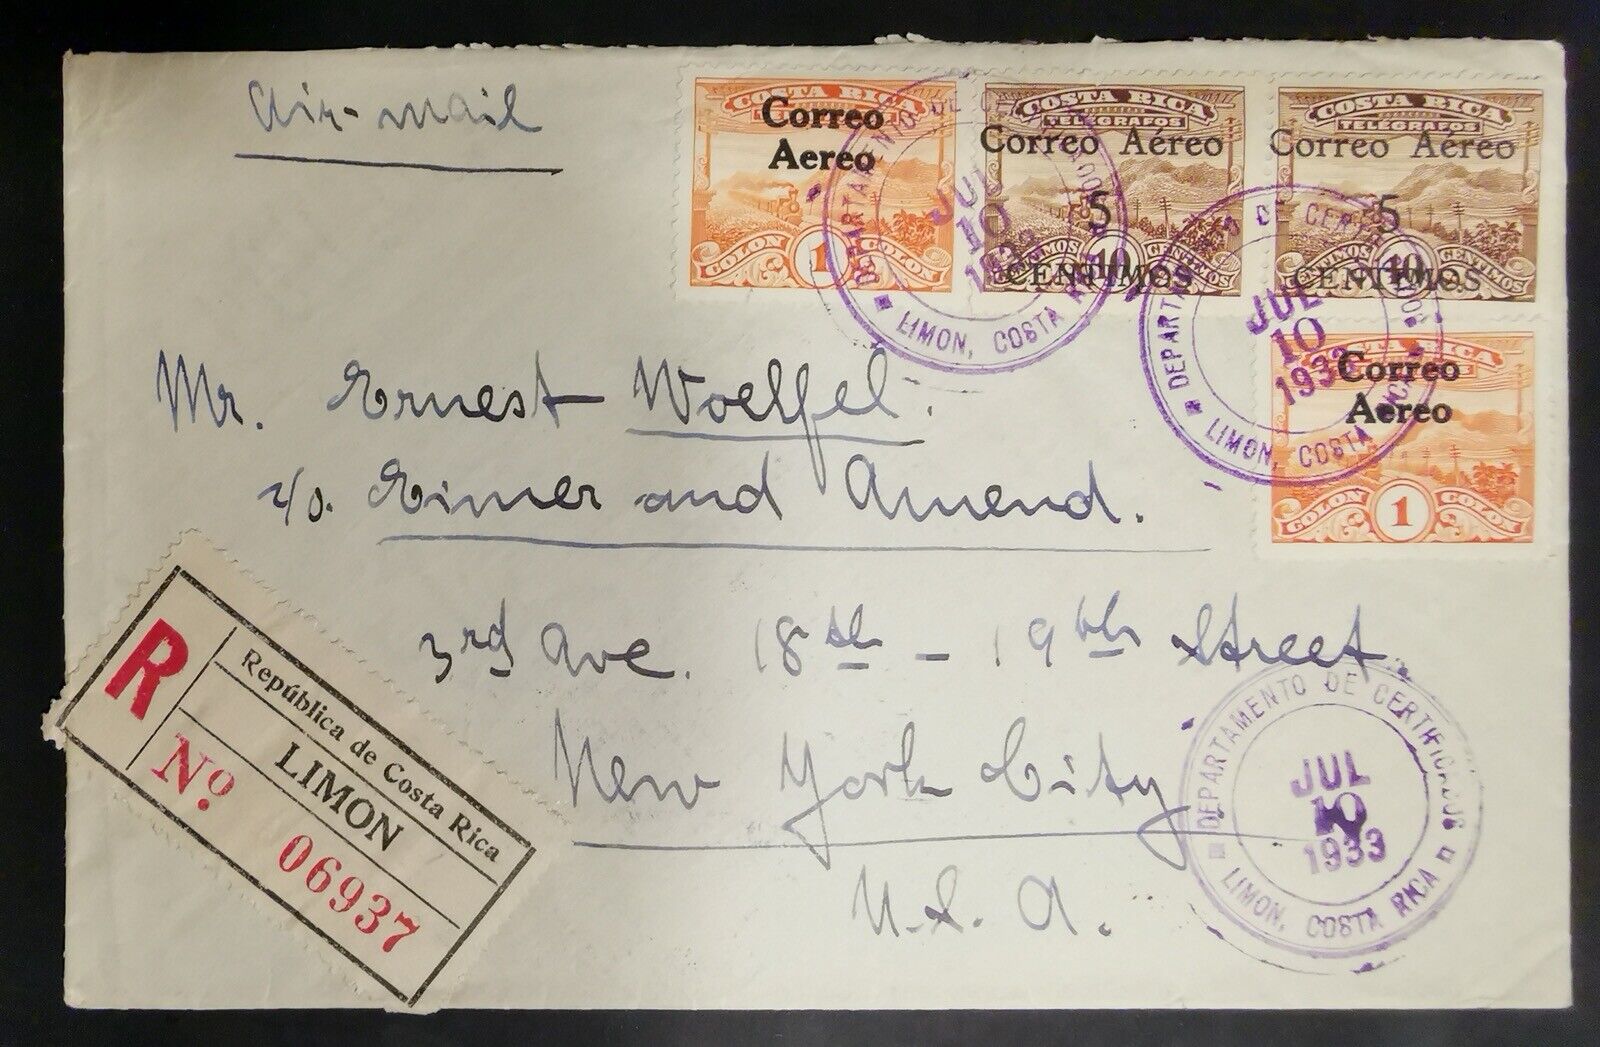 Air-mail
COSTA RICA
Correo
Aereo
COLON 1 COLON
COSTA RICA
TELEGRAFOS
Correo Aéreo
5
CENTIMOS 10 CENTIMOS
CENTIMOS
COSTA RICA
TELEGRAFOS
Correo Aéreo
5
CENTIMOS 10 CENTIMOS
CENTIMOS
COSTA RICA
Correo
Aereo
COLON 1 COLON
DEPARTAMENTO DE CERTIFICADOS
JUL
10
1933
LIMON, COSTA RICA
DEPARTAMENTO DE CERTIFICADOS
JUL
10
1933
LIMON, COSTA RICA
Mr. Ernest Woelfel.
c/o. Eimer and Amend.
3rd Ave. 18th - 19th Street
New York City
U.S.A.
R
República de Costa Rica
LIMON
Nº 06937
DEPARTAMENTO DE CERTIFICADOS
JUL
10
1933
LIMON, COSTA RICA